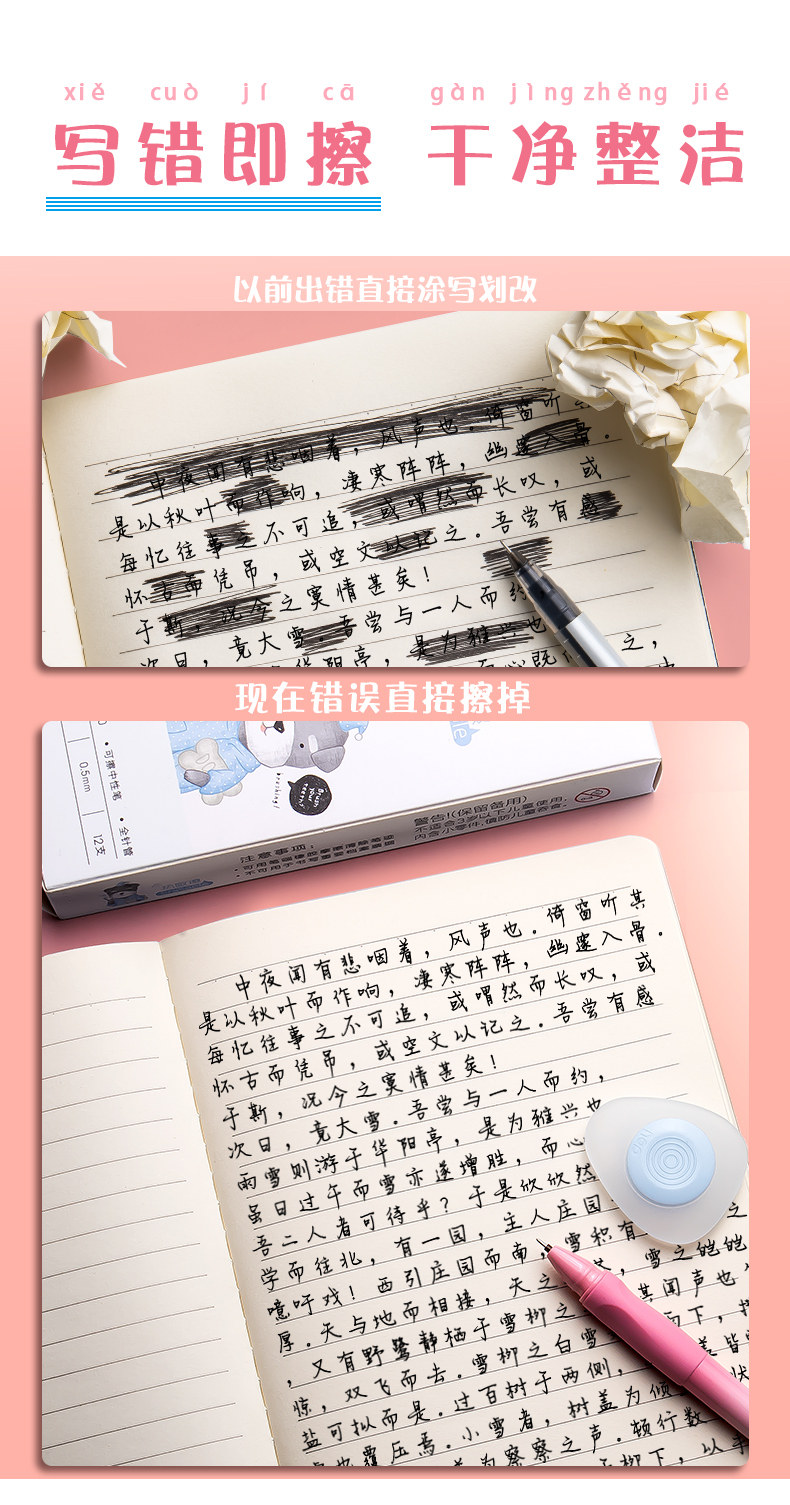 xiě cuò jí cā gàn jìng zhěng jié
写错即擦 干净整洁
以前出错直接涂写划改
中夜闻有悲咽着，风声也．倚窗听其
幽邃入骨．
是以秋叶而作响，凄寒阵阵，
每忆往事之不可追，或喟然而长叹，或
怀古而凭吊，或空文以记之．吾尝有感
于斯，况今之寞情甚矣！
次日，竟大雪．吾尝与一人而约
华阳亭，是为雅兴也
现在错误直接擦掉
可擦中性笔
全针管
0.5mm
12支
Brush your teeth
注意事项：
警告！(保留备用)
不适合3岁以下儿童使用，
内含小零件，谨防儿童吞食。
中夜闻有悲咽着，风声也．倚窗听其
是以秋叶而作响，凄寒阵阵，幽邃入骨．
每忆往事之不可追，或喟然而长叹，或
怀古而凭吊，或空文以记之．吾尝有感
于斯，况今之寞情甚矣！
次日，竟大雪．吾尝与一人而约，
雨雪则游于华阳亭，是为雅兴也
虽日过午而雪亦遂增胜，而心
吾二人者可待乎？于是攸攸然
学而往北，有一园，主人庄园
噫吁戏！西引庄园而南，雪积有
厚．天与地而相接，天之 雪之皑皑
，又有野鹭静栖于雪柳之 其闻声也
惊，双飞而去．雪柳之白雪 而下，
盐可拟而是．过百树于两侧， 盖皆
也覆压焉．小雪者，树盖为倾 状
为察察之声．顿行数
柳下，以